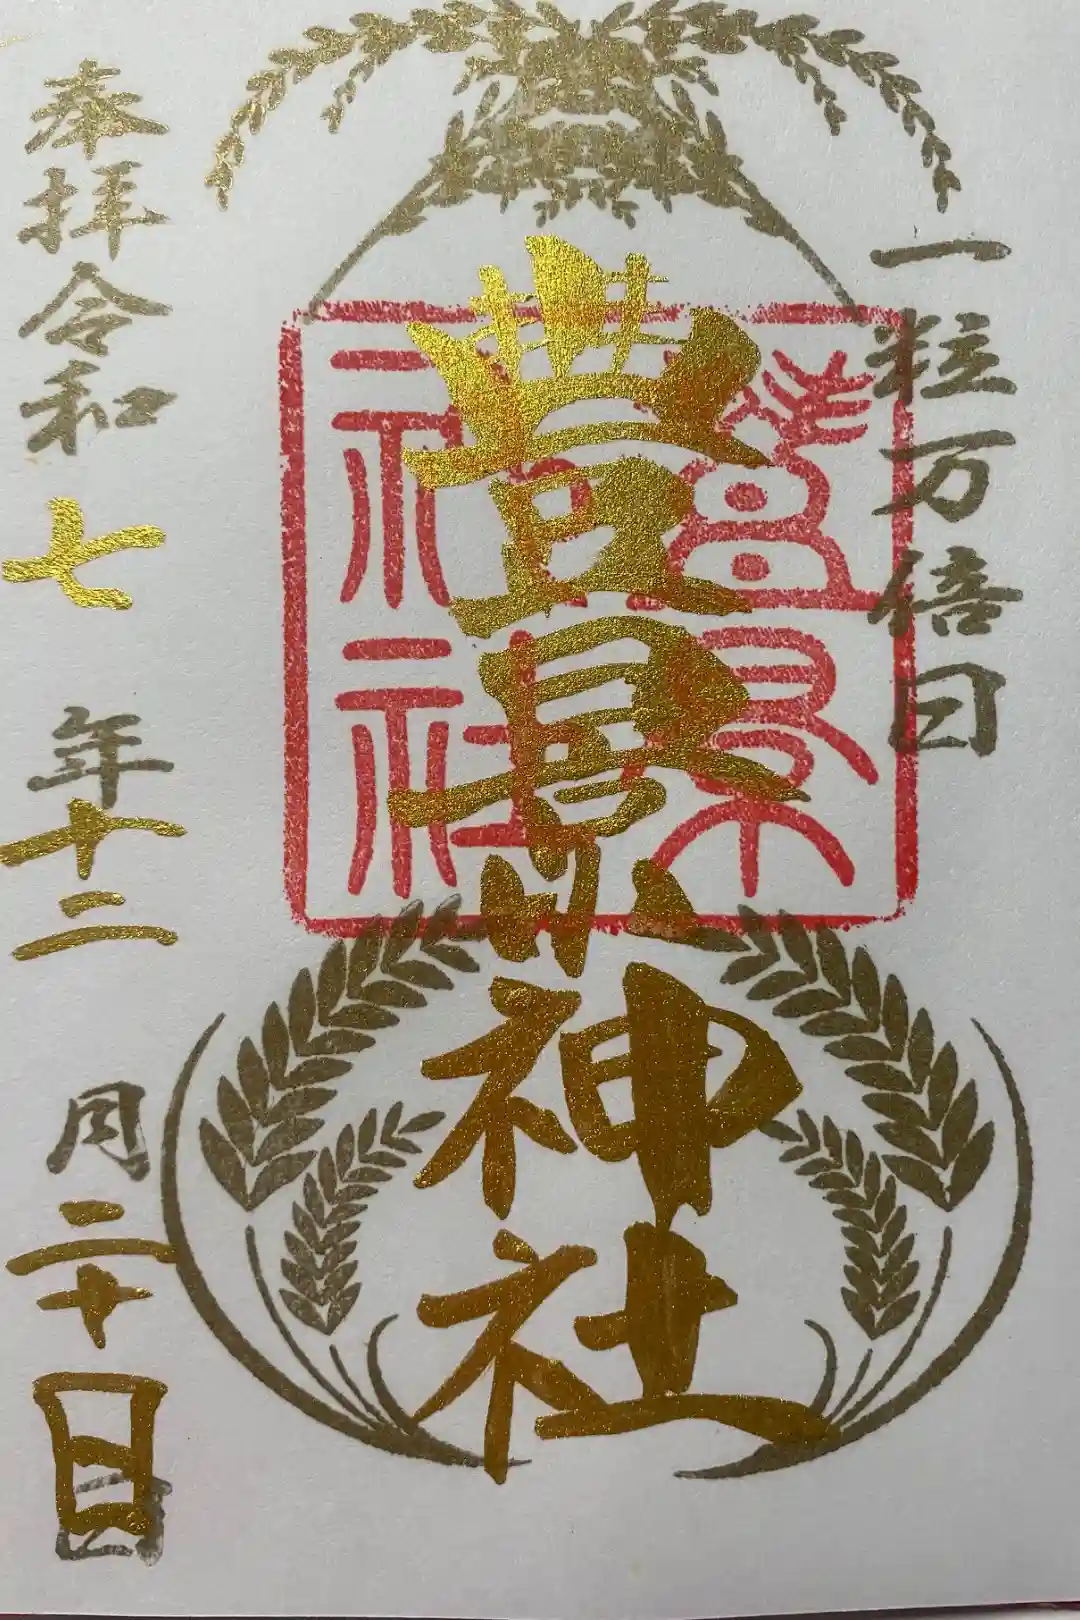 一粒万倍日
豐景神社
豊景
神社
奉拝令和七年十二月二十日